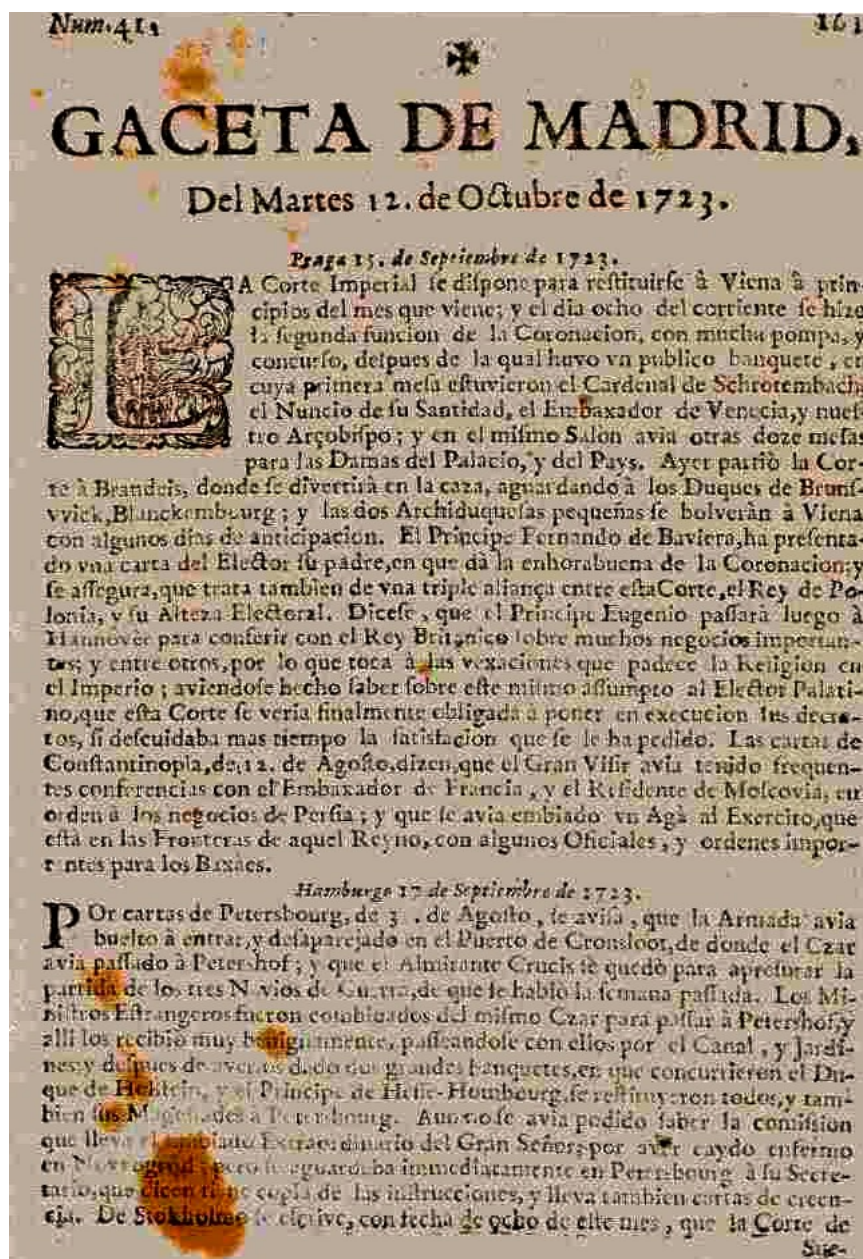 Num. 41.
GACETA DE MADRID,
Del Martes 12. de Octubre de 1723.
Praga 15. de Septiembre de 1723.
LA Corte Imperial se dispone para restituirse à Viena à prin-
cipios del mes que viene; y el dia ocho del corriente se hizo
la segunda funcion de la Coronacion, con mucha pompa, y
concurso, despues de la qual huvo vn publico banquete, en
cuya primera mesa estuvieron el Cardenal de Schrotembach
el Nuncio de su Santidad, el Embaxador de Venecia, y nues-
tro Arçobispo; y en el mismo Salon avia otras doze mesas
para las Damas del Palacio, y del Pays. Ayer partiò la Cor-
te à Brandeis, donde se divertirà en la caza, aguardando à los Duques de Bruns-
vvick, Blanckembourg; y las dos Archiduquesas pequeñas se bolveràn à Viena
con algunos dias de anticipacion. El Principe Fernando de Baviera, ha presenta-
do vna carta del Elector su padre, en que dà la enhorabuena de la Coronacion; y
se assegura, que trata tambien de vna triple aliança entre esta Corte, el Rey de Po-
lonia, y su Alteza Electoral. Dicese, que el Principe Eugenio passarà luego à
Hannover para conferir con el Rey Britanico sobre muchos negocios importan-
tes; y entre otros, por lo que toca à las vexaciones que padece la Religion en
el Imperio; aviendose hecho saber sobre este mismo assumpto al Elector Palati-
no, que esta Corte se veria finalmente obligada à poner en execucion sus decre-
tos, si descuidaba mas tiempo la satisfacion que se le ha pedido. Las cartas de
Constantinopla, de 12. de Agosto, dizen, que el Gran Visir avia tenido frequen-
tes conferencias con el Embaxador de Francia, y el Residente de Moscovia, en
orden à los negocios de Persia; y que se avia embiado vn Agà al Exercito, que
està en las Fronteras de aquel Reyno, con algunos Oficiales, y ordenes impor-
tantes para los Baxaes.
Hamburgo 17 de Septiembre de 1723.
POr cartas de Petersbourg, de 3 . de Agosto, se avisa, que la Armada avia
buelto à entrar, y desaparejado en el Puerto de Cronsloot, de donde el Czar
avia passado à Petershof; y que el Almirante Crucis se quedò para apresurar la
partida de los tres Navios de Guerra, de que se hablò la semana passada. Los Mi-
nistros Estrangeros fueron combidados del mismo Czar para passar à Petershof, y
alli los recibiò muy benignamente, passeandose con ellos por el Canal, y Jardi-
nes; y despues de averlos dado dos grandes banquetes, en que concurrieron el Du-
que de Holstein, y el Principe de Hesse-Hombourg, se restituyeron todos, y tam-
bien sus Magestades à Petersbourg. Aun no se avia podido saber la comission
que lleva el embiado Extraordinario del Gran Señor, por aver caydo enfermo
en Novvogrod; pero se aguardaba immediatamente en Petersbourg à su Secre-
tario, que dicen tiene copia de las instrucciones, y lleva tambien cartas de creen-
cia. De Stokholmo se escrive, con fecha de ocho de este mes, que la Corte de
Sue-